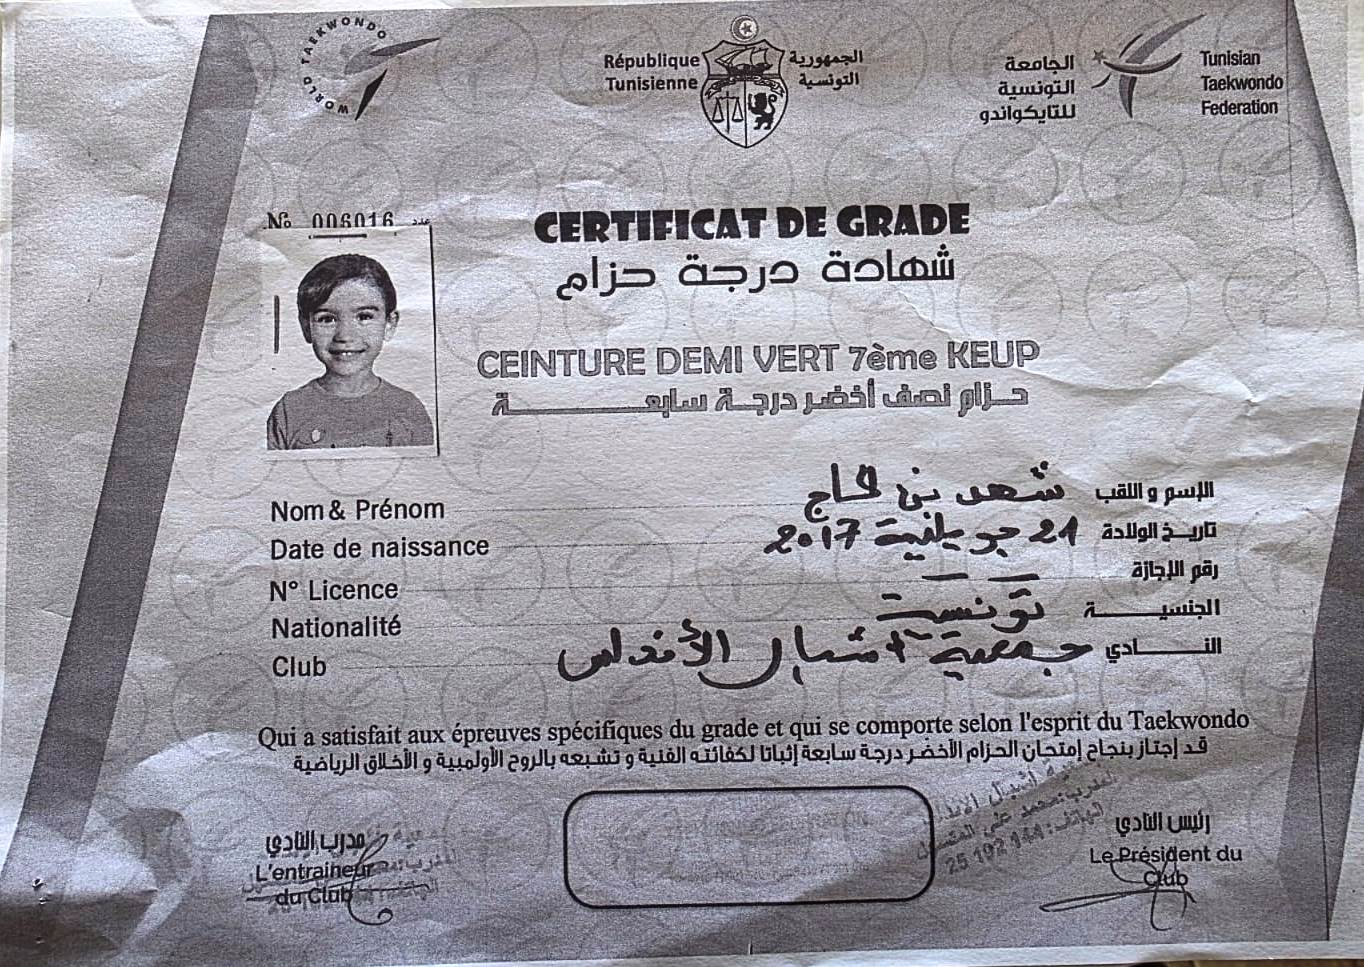 WORLD TAEKWONDO
République
Tunisienne
الجمهورية
التونسية
الجامعة
التونسية
للتايكواندو
Tunisian
Taekwondo
Federation
№ 006016 عدد
CERTIFICAT DE GRADE
شهادة درجة حزام
CEINTURE DEMI VERT 7ème KEUP
حزام نصف أخضر درجة سابعة
Nom & Prénom شهد بن الحاج الإسم و اللقب
Date de naissance 21 جويلية 2017 تاريخ الولادة
N° Licence — — رقم الإجازة
Nationalité تونسية الجنسية
Club جمعية أشبال الأندلس النادي
Qui a satisfait aux épreuves spécifiques du grade et qui se comporte selon l'esprit du Taekwondo
قد إجتاز بنجاح إمتحان الحزام الأخضر درجة سابعة إثباتا لكفائته الفنية و تشبعه بالروح الأولمبية و الأخلاق الرياضية
مدرب النادي
L'entraineur
du Club
أشبال الاندلس
المدرب: محمد علي
الهاتف: 25 192 144
رئيس النادي
Le Président du
Club